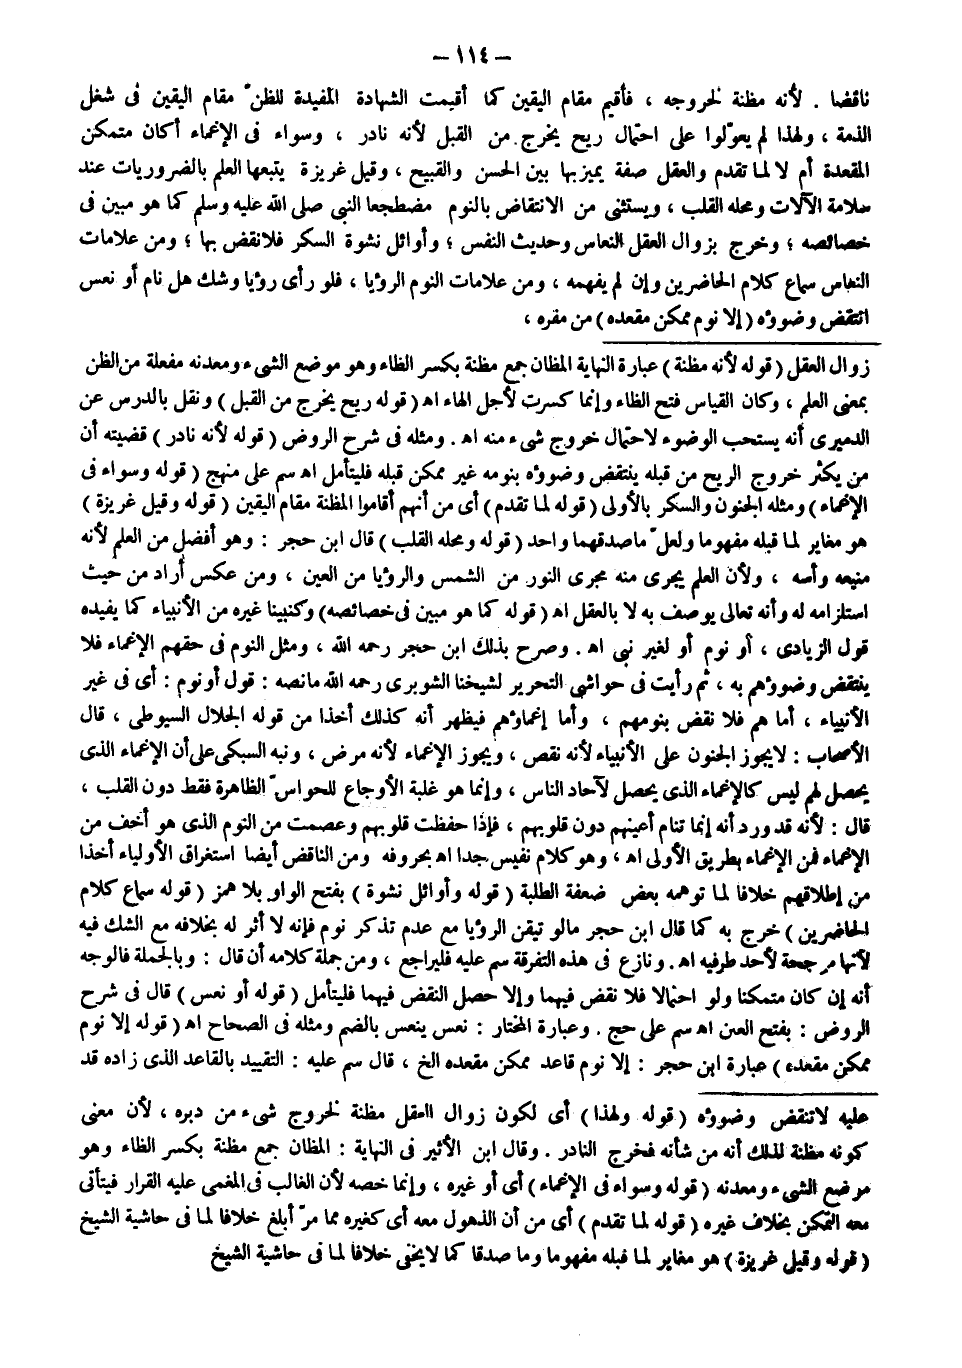 – ١١٤ –
ناقضا . لأنه مظنة لخروجه ، فأقيم مقام اليقين كما أقيمت الشهادة المفيدة للظن مقام اليقين فى شغل
الذمة ، ولهذا لم يعوّلوا على احتمال ريح يخرج من القبل لأنه نادر ، وسواء فى الإغماء أكان متمكن
المقعدة أم لا لما تقدم والعقل صفة يميز بها بين الحسن والقبيح ، وقيل غريزة يتبعها العلم بالضروريات عند
سلامة الآلات ومحله القلب ، ويستثنى من الانتقاض بالنوم مضطجعا النبى صلى الله عليه وسلم كما هو مبين فى
خصائصه ؛ وخرج بزوال العقل النعاس وحديث النفس ؛ وأوائل نشوة السكر فلا نقض بها ؛ ومن علامات
النعاس سماع كلام الحاضرين وإن لم يفهمه ، ومن علامات النوم الرؤيا ، فلو رأى رؤيا وشك هل نام أو نعس
انتقض وضوؤه (إلا نوم ممكن مقعده) من مقره ،
زوال العقل (قوله لأنه مظنة) عبارة النهاية المظان جمع مظنة بكسر الظاء وهو موضع الشىء ومعدنه مفعلة من الظن
بمعنى العلم ، وكان القياس فتح الظاء وإنما كسرت لأجل الهاء اه (قوله ريح يخرج من القبل) ونقل بالدرس عن
الدميرى أنه يستحب الوضوء لاحتمال خروج شىء منه اه . ومثله فى شرح الروض (قوله لأنه نادر) قضيته أن
من يكثر خروج الريح من قبله ينتقض وضوؤه بنومه غير ممكن قبله فليتأمل اه سم على منهج (قوله وسواء فى
الإغماء) ومثله الجنون والسكر بالأولى (قوله لما تقدم) أى من أنهم أقاموا المظنة مقام اليقين (قوله وقيل غريزة)
هو مغاير لما قبله مفهوما ولعلّ ماصدقهما واحد (قوله ومحله القلب) قال ابن حجر : وهو أفضل من العلم لأنه
منبعه وأسه ، ولأن العلم يجرى منه مجرى النور من الشمس والرؤيا من العين ، ومن عكس أراد من حيث
استلزامه له وأنه تعالى يوصف به لا بالعقل اه (قوله كما هو مبين فى خصائصه) وكنبينا غيره من الأنبياء كما يفيده
قول الزيادى ، أو نوم أو لغير نبى اه . وصرح بذلك ابن حجر رحمه الله ، ومثل النوم فى حقهم الإغماء فلا
ينتقض وضوؤهم به ، ثم رأيت فى حواشى التحرير لشيخنا الشوبرى رحمه الله مانصه : قول أونوم : أى فى غير
الأنبياء ، أما هم فلا نقض بنومهم ، وأما إغماؤهم فيظهر أنه كذلك أخذا من قوله الجلال السيوطى ، قال
الأصحاب : لايجوز الجنون على الأنبياء لأنه نقص ، ويجوز الإغماء لأنه مرض ، ونبه السبكى على أن الإغماء الذى
يحصل لهم ليس كالإغماء الذى يحصل لآحاد الناس ، وإنما هو غلبة الأوجاع للحواسّ الظاهرة فقط دون القلب ،
قال : لأنه قد ورد أنه إنما تنام أعينهم دون قلوبهم ، فإذا حفظت قلوبهم وعصمت من النوم الذى هو أخف من
الإغماء فمن الإغماء بطريق الأولى اه ، وهو كلام نفيس جدا اه بحروفه ومن الناقض أيضا استغراق الأولياء أخذا
من إطلاقهم خلافا لما توهمه بعض ضعفة الطلبة (قوله وأوائل نشوة) بفتح الواو بلا همز (قوله سماع كلام
الحاضرين) خرج به كما قال ابن حجر مالو تيقن الرؤيا مع عدم تذكر نوم فإنه لا أثر له بخلافه مع الشك فيه
لأنها مرجحة لأحد طرفيه اه . ونازع فى هذه التفرقة سم عليه فليراجع ، ومن جملة كلامه أن قال : وبالجملة فالوجه
أنه إن كان متمكنا ولو احتمالا فلا نقض فيهما وإلا حصل النقض فيهما فليتأمل (قوله أو نعس) قال فى شرح
الروض : بفتح العين اه سم على حج . وعبارة المختار : نعس ينعس بالضم ومثله فى الصحاح اه (قوله إلا نوم
ممكن مقعده) عبارة ابن حجر : إلا نوم قاعد ممكن مقعده الخ ، قال سم عليه : التقييد بالقاعد الذى زاده قد
عليه لاتنقض وضوؤه (قوله ولهذا) أى لكون زوال العقل مظنة لخروج شىء من دبره ، لأن معنى
كونه مظنة لذلك أنه من شأنه فخرج النادر . وقال ابن الأثير فى النهاية : المظان جمع مظنة بكسر الظاء وهو
موضع الشىء ومعدنه (قوله وسواء فى الإغماء) أى أو غيره ، وإنما خصه لأن الغالب فى المغمى عليه القرار فيتأتى
معه التمكن بخلاف غيره (قوله لما تقدم) أى من أن الذهول معه أى كغيره مما مرّ أبلغ خلافا لما فى حاشية الشيخ
(قوله وقيل غريزة) هو مغاير لما قبله مفهوما وما صدقا كما لايخفى خلافا لما فى حاشية الشيخ